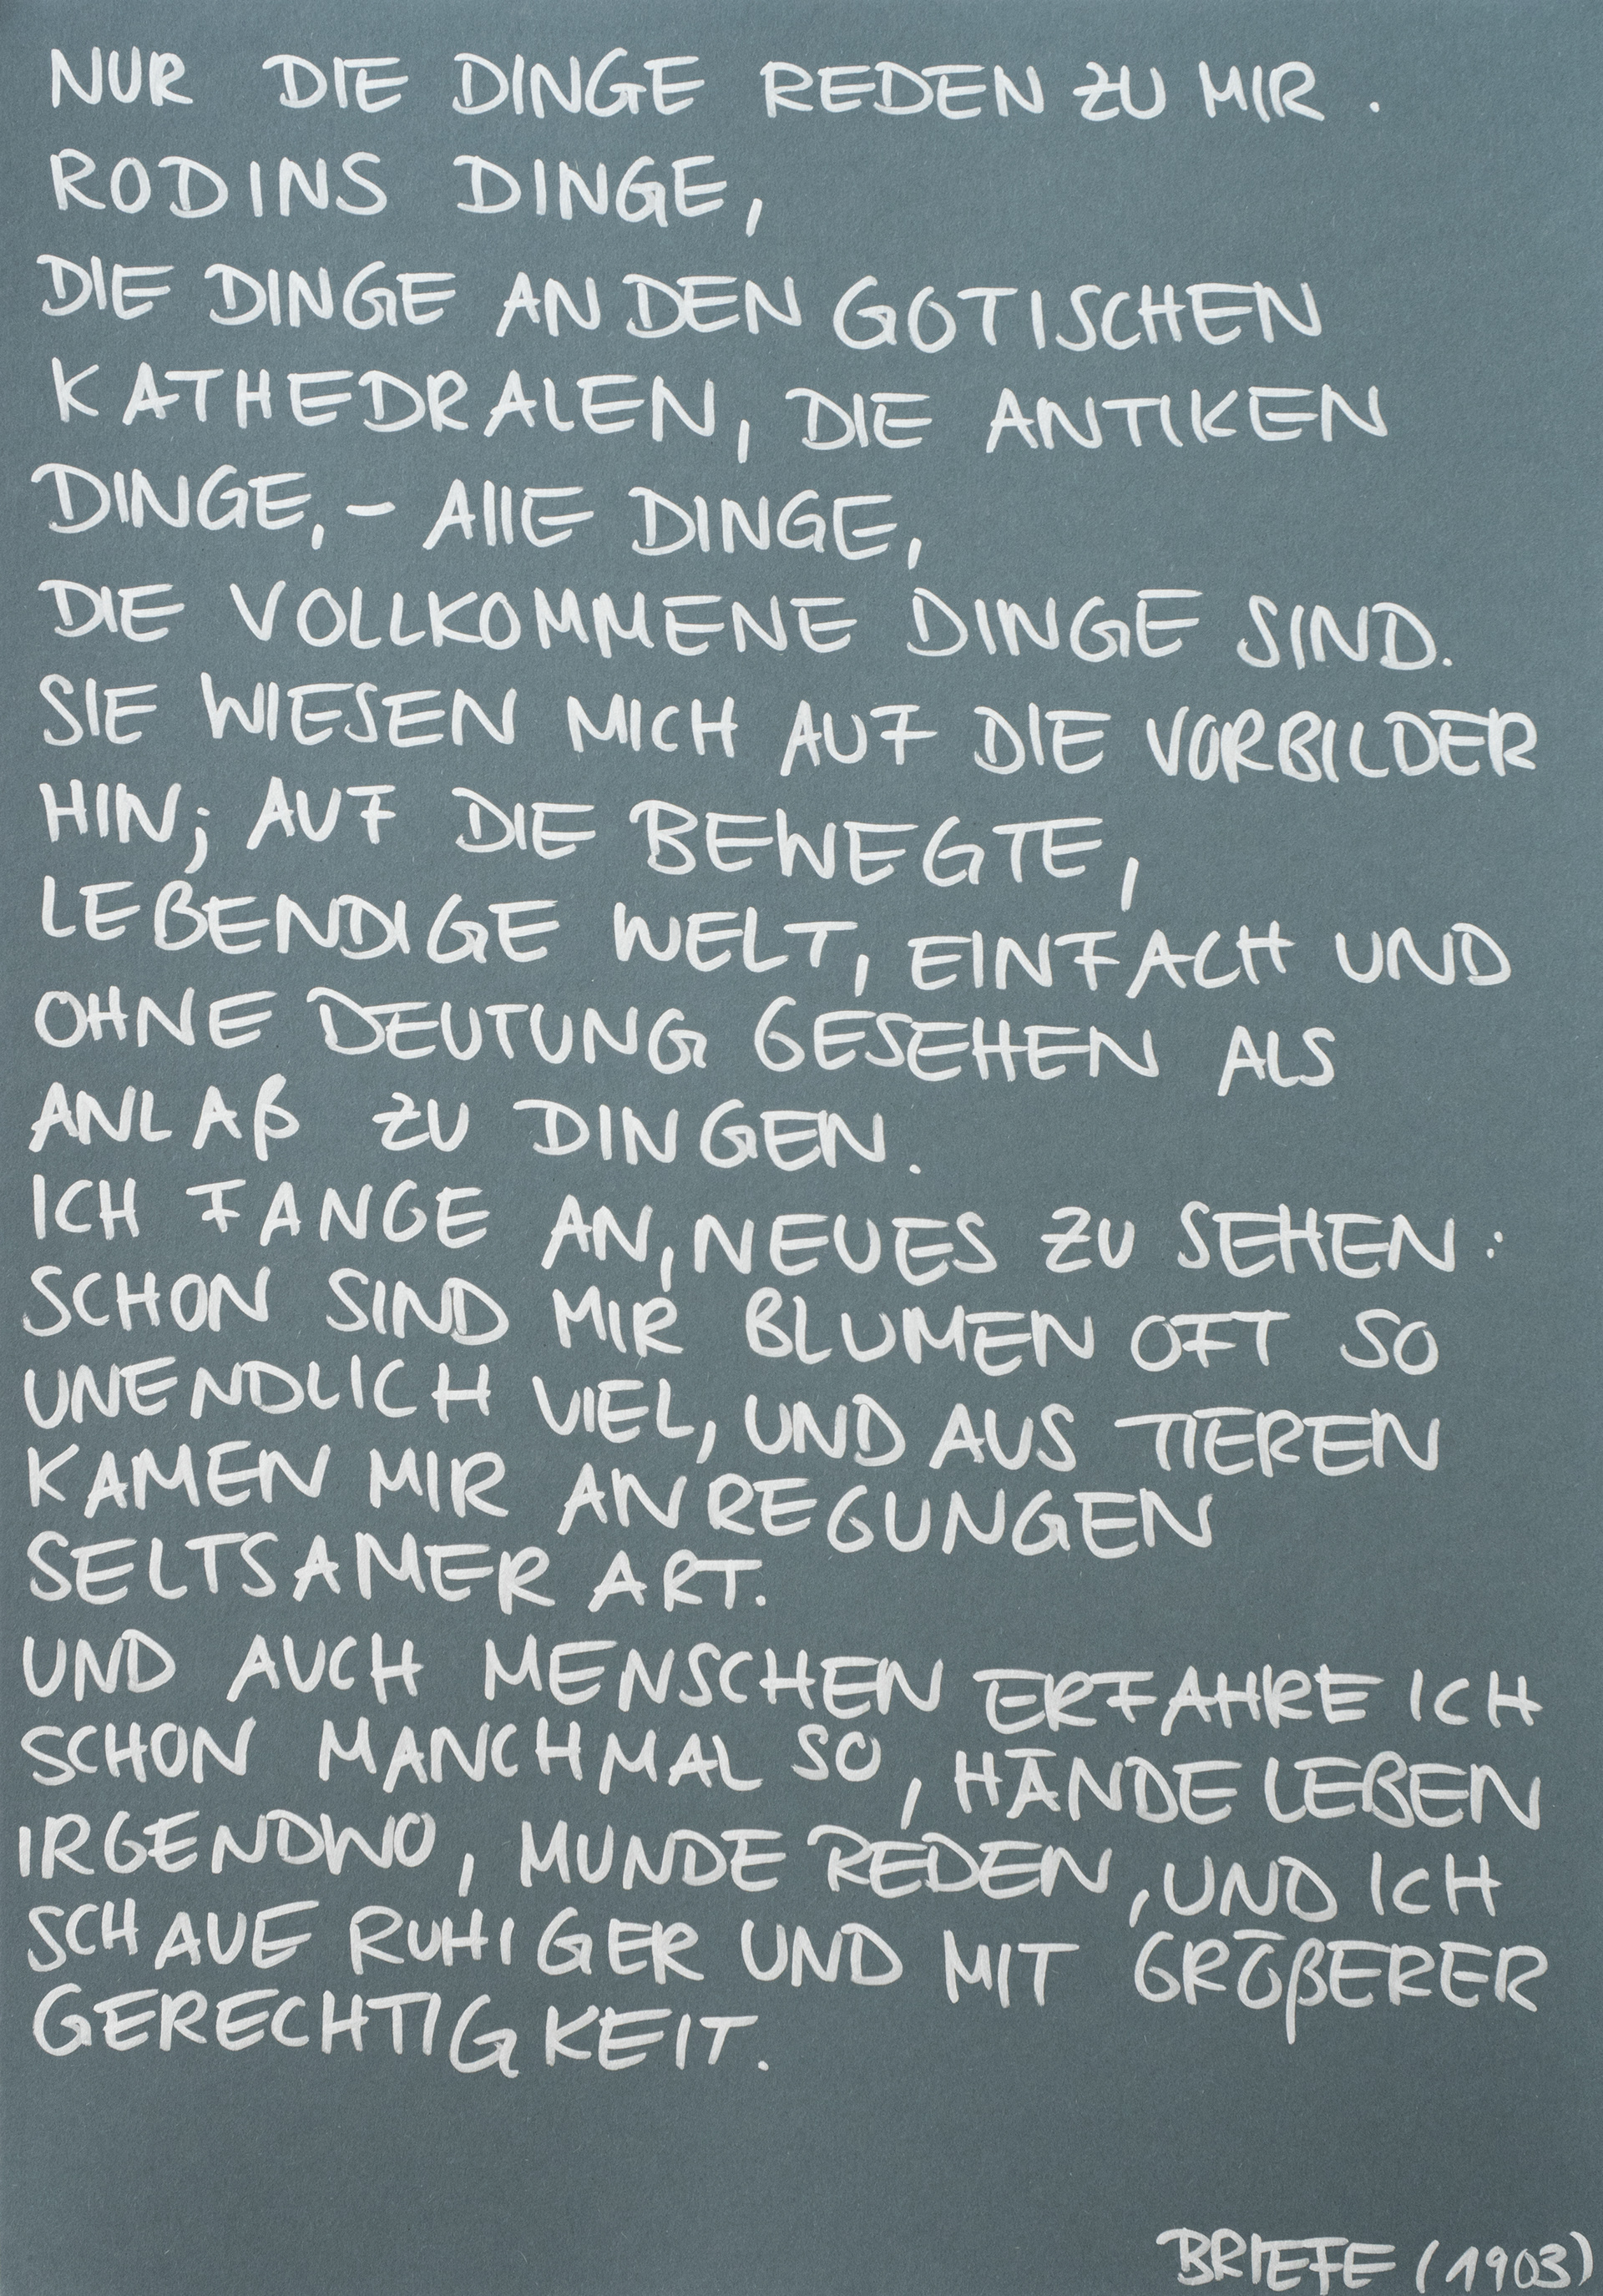 NUR DIE DINGE REDEN ZU MIR.
RODINS DINGE,
DIE DINGE AN DEN GOTISCHEN
KATHEDRALEN, DIE ANTIKEN
DINGE,- AllE DINGE,
DIE VOLLKOMMENE DINGE SIND.
SIE WIESEN MICH AUF DIE VORBILDER
HIN; AUF DIE BEWEGTE,
LEBENDIGE WELT, EINFACH UND
OHNE DEUTUNG GESEHEN ALS
ANLAß ZU DINGEN.
ICH FANGE AN, NEUES ZU SEHEN:
SCHON SIND MIR BLUMEN OFT SO
UNENDLICH VIEL, UND AUS TIEREN
KAMEN MIR ANREGUNGEN
SELTSAMER ART.
UND AUCH MENSCHEN ERFAHRE ICH
SCHON MANCHMAL SO, HÄNDE LEBEN
IRGENDWO, MUNDE REDEN, UND ICH
SCHAUE RUHIGER UND MIT GRÖßERER
GERECHTIGKEIT.
BRIEFE (1903)